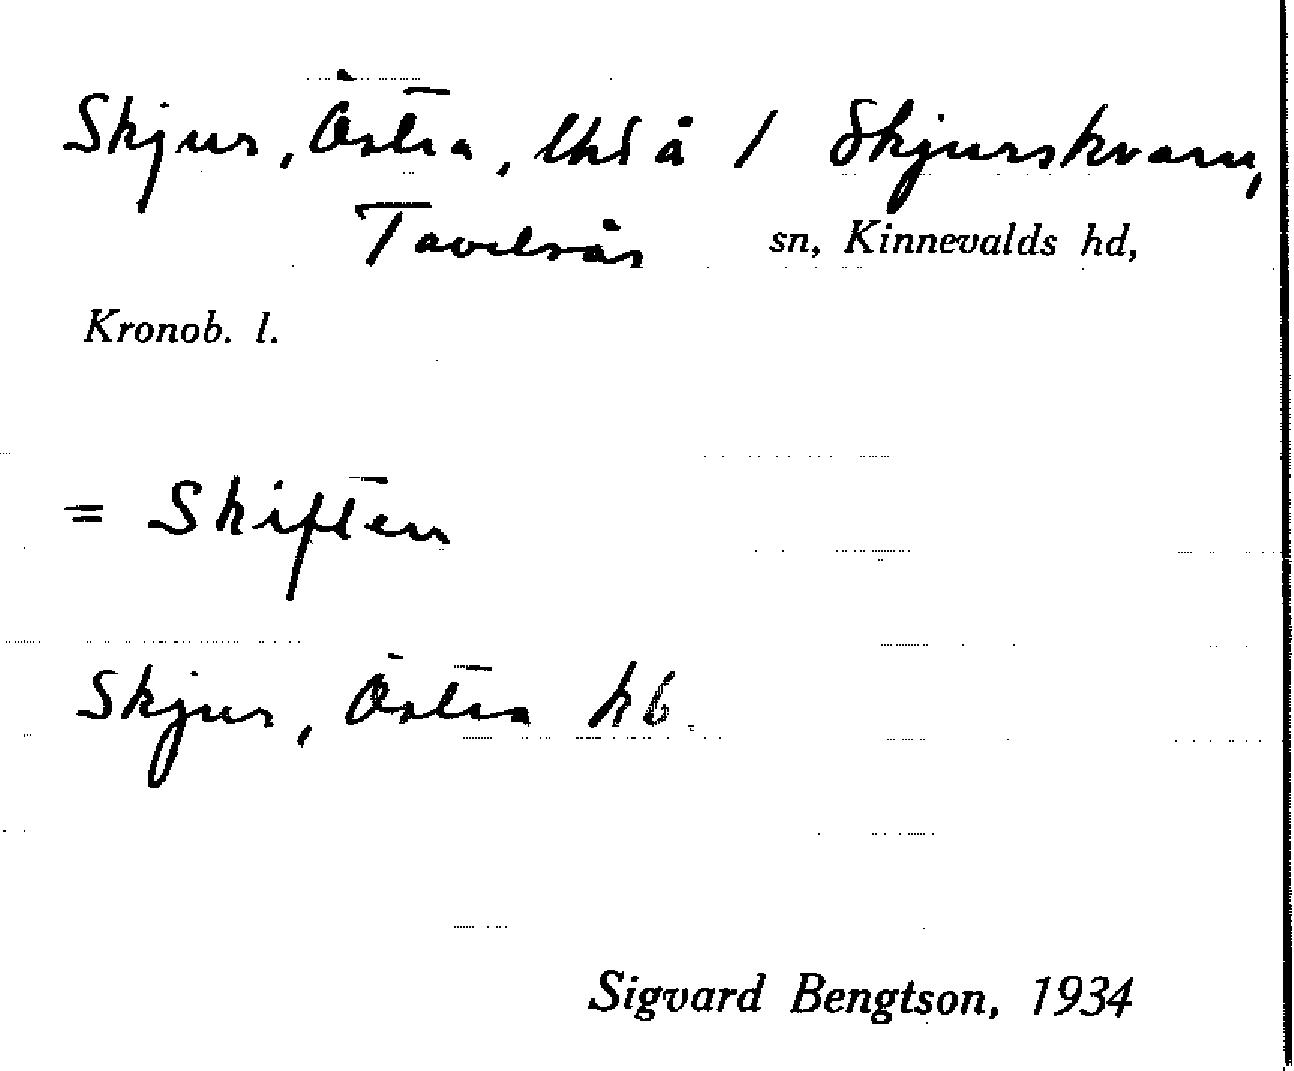 Skjur, Östra, lhd å 1 Skjurskvarn,
Tävelsås sn, Kinnevalds hd,
Kronob. l.
= Skiften
Skjur, Östra k6.
Sigvard Bengtson, 1934